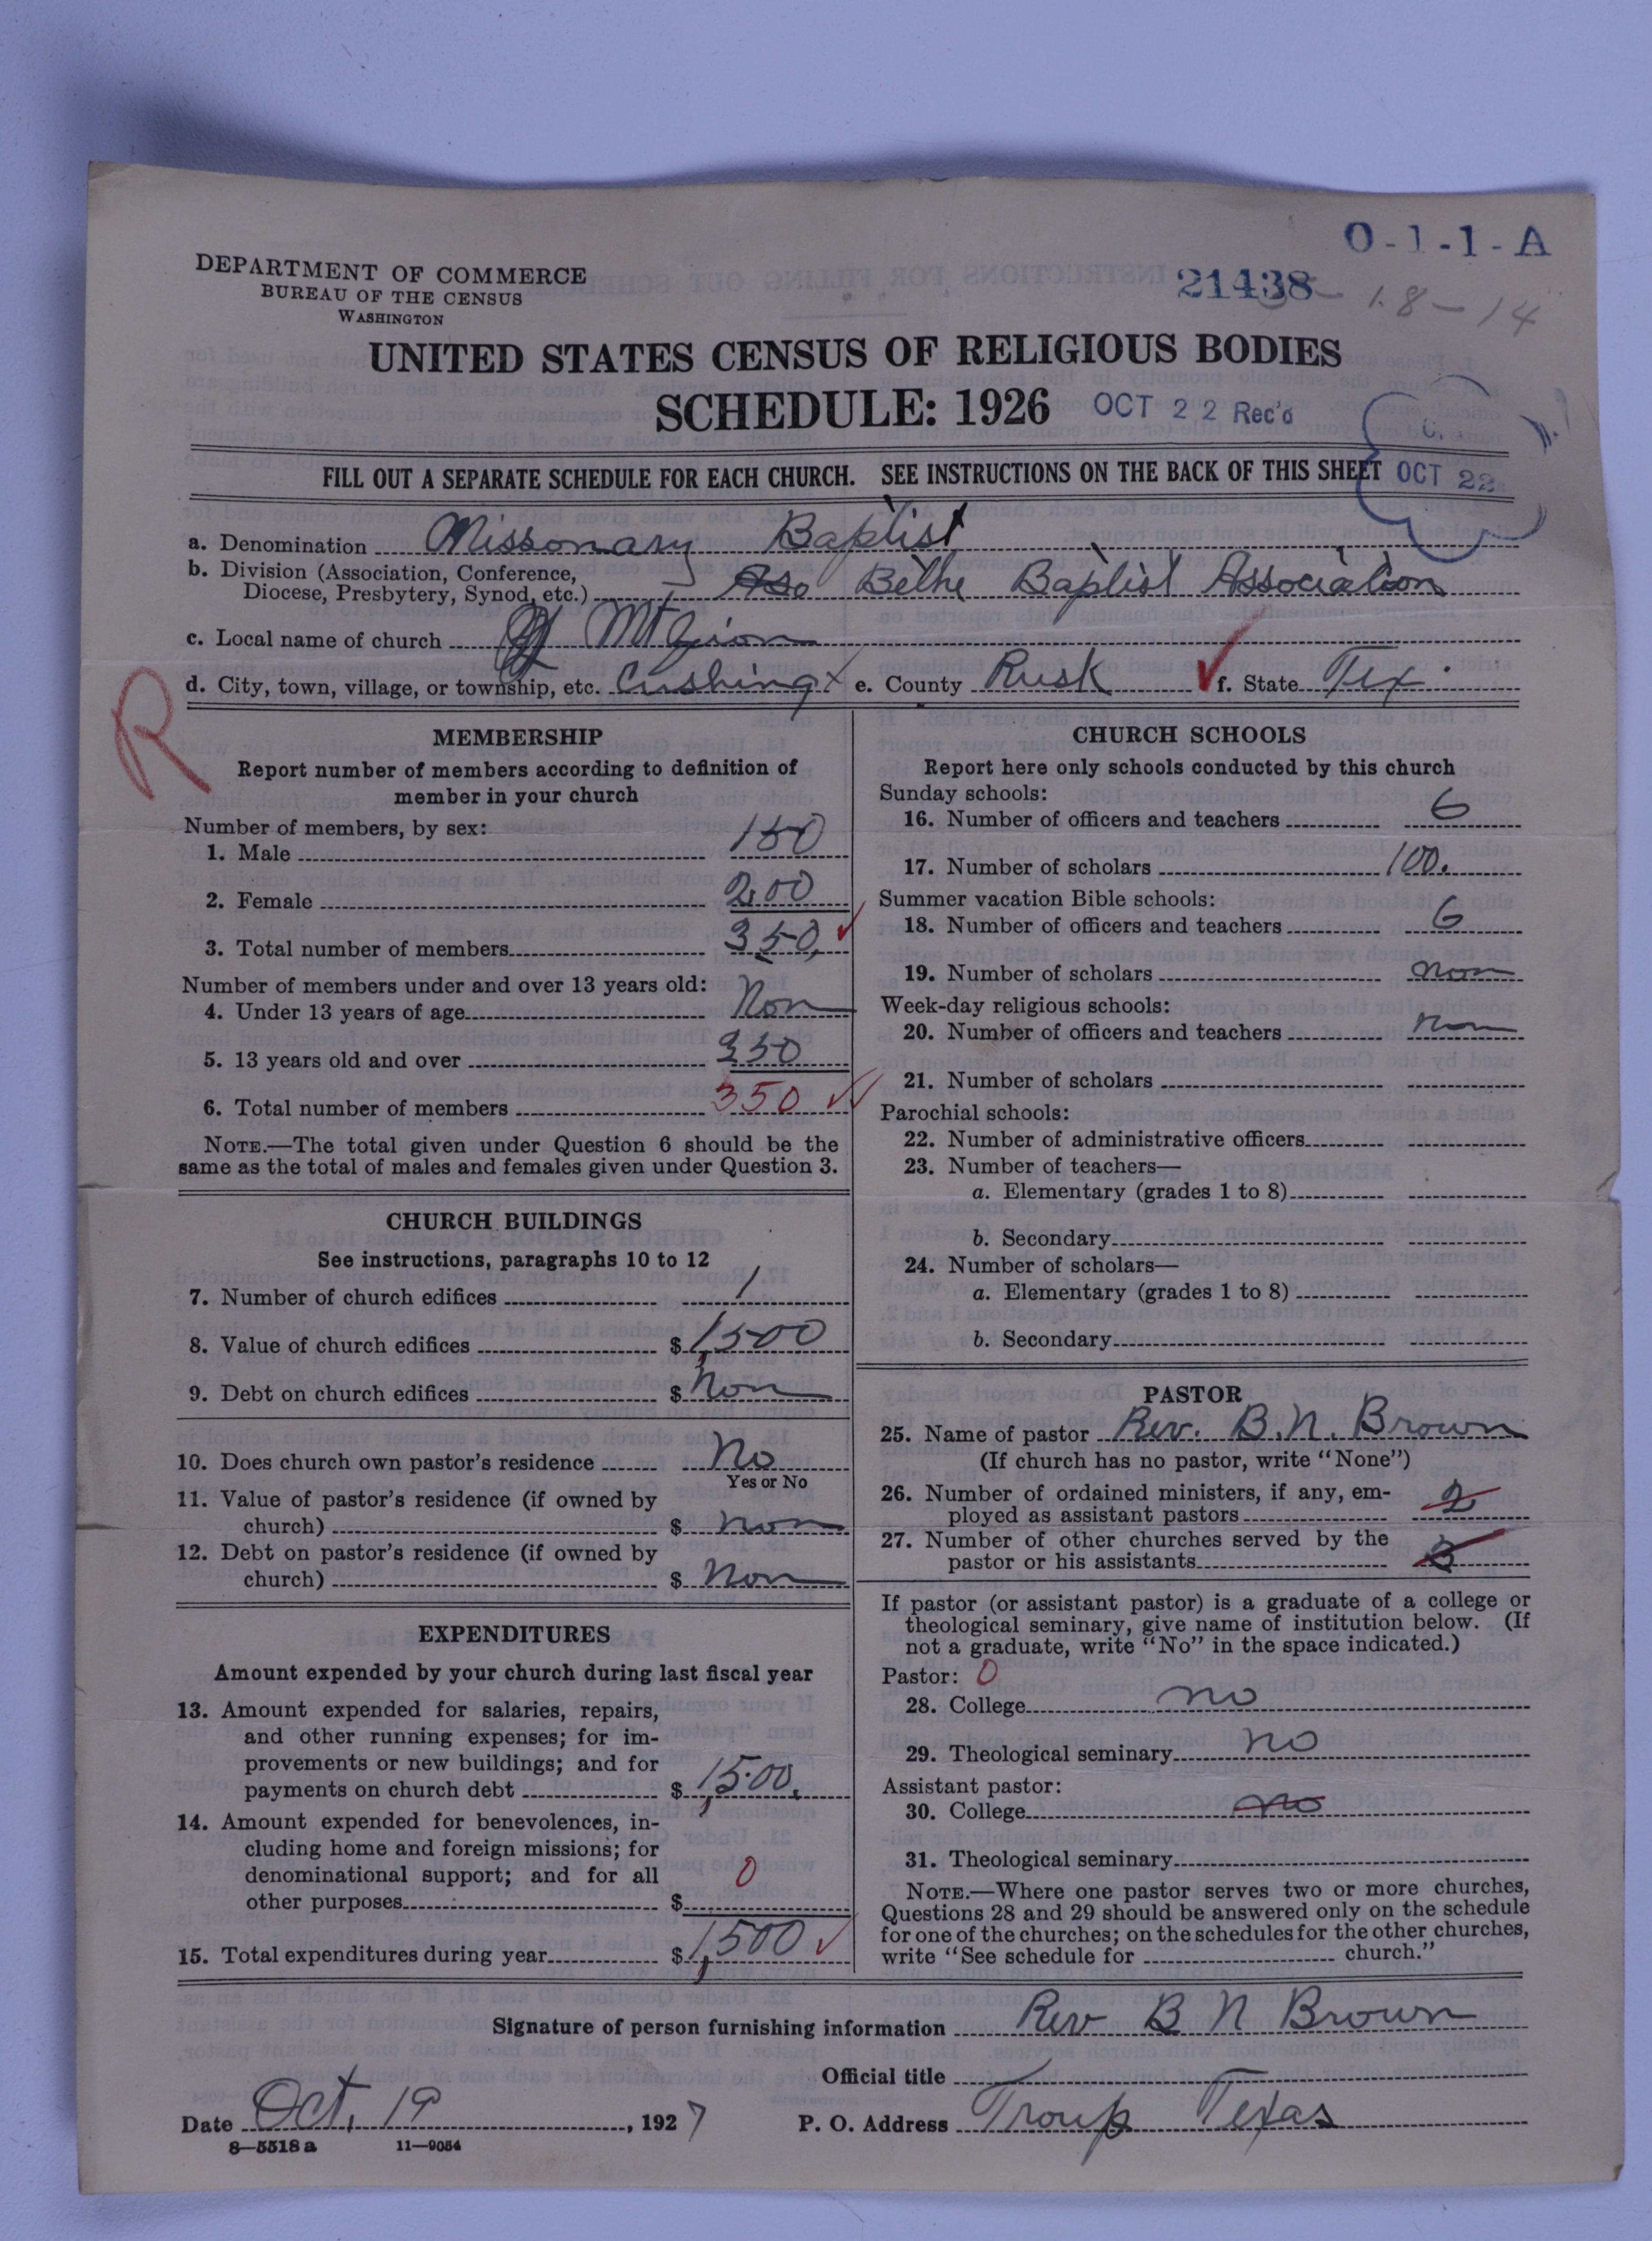 O-1-1-A
DEPARTMENT OF COMMERCE
BUREAU OF THE CENSUS
WASHINGTON
21438 - 18 - 14
UNITED STATES CENSUS OF RELIGIOUS BODIES
SCHEDULE: 1926 OCT 22 Rec'd
FILL OUT A SEPARATE SCHEDULE FOR EACH CHURCH. SEE INSTRUCTIONS ON THE BACK OF THIS SHEET OCT 22
a. Denomination Missonary Baptist
b. Division (Association, Conference,
Diocese, Presbytery, Synod, etc.) Aso Bethe Baptist Association
c. Local name of church Mt Zion
d. City, town, village, or township, etc. Cushing x e. County Rusk ✓ f. State Tex.
R
MEMBERSHIP
Report number of members according to definition of
member in your church
Number of members, by sex:
1. Male 150
2. Female 200
3. Total number of members 350 ✓
Number of members under and over 13 years old:
4. Under 13 years of age Non
5. 13 years old and over 350
6. Total number of members 350 ✓✓
NOTE.—The total given under Question 6 should be the
same as the total of males and females given under Question 3.
CHURCH BUILDINGS
See instructions, paragraphs 10 to 12
7. Number of church edifices 1
8. Value of church edifices $ 1,500
9. Debt on church edifices $ Non
10. Does church own pastor's residence No
Yes or No
11. Value of pastor's residence (if owned by
church) $ Non
12. Debt on pastor's residence (if owned by
church) $ Non
EXPENDITURES
Amount expended by your church during last fiscal year
13. Amount expended for salaries, repairs,
and other running expenses; for im-
provements or new buildings; and for
payments on church debt $ 1,500.
14. Amount expended for benevolences, in-
cluding home and foreign missions; for
denominational support; and for all
other purposes $ 0
15. Total expenditures during year $ 1,500 ✓
CHURCH SCHOOLS
Report here only schools conducted by this church
Sunday schools:
16. Number of officers and teachers 6
17. Number of scholars 100.
Summer vacation Bible schools:
18. Number of officers and teachers 6
19. Number of scholars non
Week-day religious schools:
20. Number of officers and teachers non
21. Number of scholars
Parochial schools:
22. Number of administrative officers
23. Number of teachers—
a. Elementary (grades 1 to 8)
b. Secondary
24. Number of scholars—
a. Elementary (grades 1 to 8)
b. Secondary
PASTOR
25. Name of pastor Rev. B. N. Brown
(If church has no pastor, write "None")
26. Number of ordained ministers, if any, em-
ployed as assistant pastors 2
27. Number of other churches served by the
pastor or his assistants 3
If pastor (or assistant pastor) is a graduate of a college or
theological seminary, give name of institution below. (If
not a graduate, write "No" in the space indicated.)
Pastor: 0
28. College no
29. Theological seminary no
Assistant pastor:
30. College no
31. Theological seminary
NOTE.—Where one pastor serves two or more churches,
Questions 28 and 29 should be answered only on the schedule
for one of the churches; on the schedules for the other churches,
write "See schedule for church."
Signature of person furnishing information Rev B N Brown
Official title
Date Oct. 19, 1927 P. O. Address Troup Texas
8—5518 a 11—9054